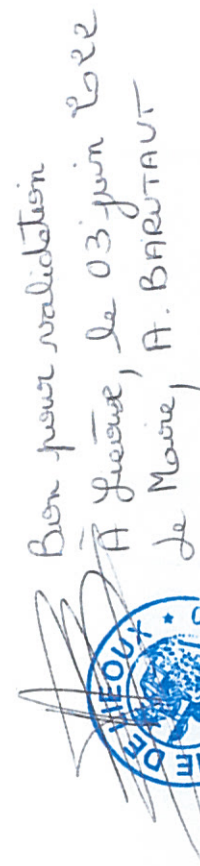 Bon pour validation
À Lieoux, le 03 juin 2022
Le Maire, A. BARUTAUT
IE DE LIEOUX *